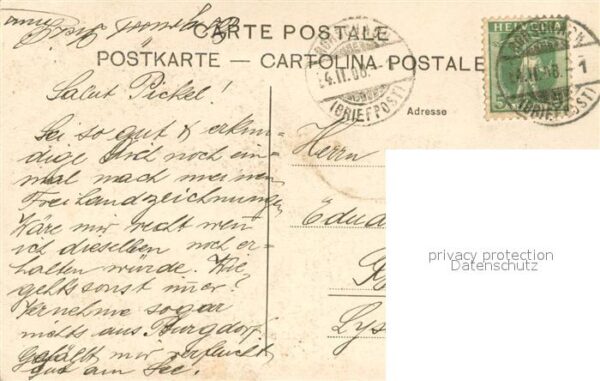 CARTE POSTALE
POSTKARTE — CARTOLINA POSTALE
HELVETIA
(BRIEFPOST)
(BRIEFPOST)
1
Adresse
Salut Pickel!
Sei so gut & erkun-
dige Dich noch ein-
mal nach meinen
Freihandzeichnungen
Wäre mir recht wen̄
ich dieselben noch er-
halten würde. Wie
gehts sonst im̄er?
Vernehme sogar
nichts aus Burgdorf
Gefällt mir verflucht
gut am See.
Herrn
Edua
Lys
privacy protection
Datenschutz